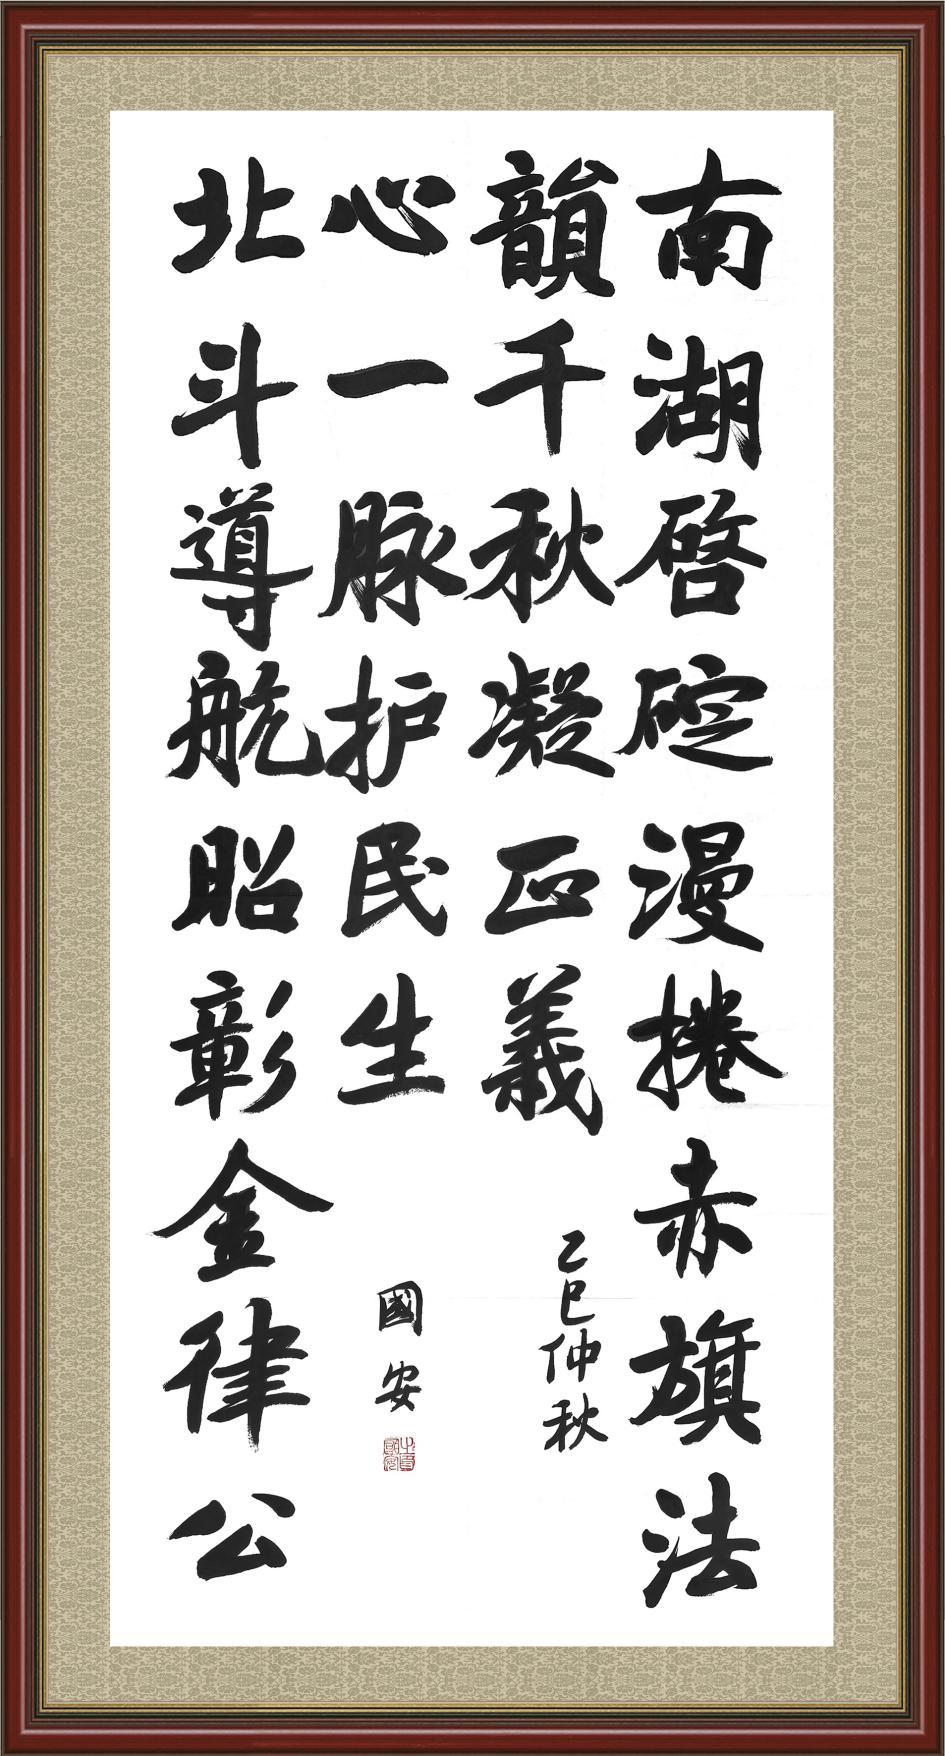 南湖啓碇漫捲赤旗法
韻千秋凝正義
乙巳仲秋
北斗導航昭彰金律公
心一脉护民生
國安